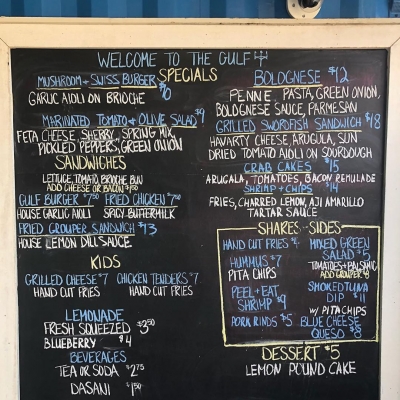 WELCOME TO THE GULF
SPECIALS
MUSHROOM + SWISS BURGER $10
GARLIC AIOLI ON BRIOCHE
MARINATED TOMATO + OLIVE SALAD $9
FETA CHEESE, SHERRY, SPRING MIX,
PICKLED PEPPERS, GREEN ONION
SANDWICHES
LETTUCE, TOMATO, BRIOCHE BUN
ADD CHEESE OR BACON $1.50
GULF BURGER $7.50 FRIED CHICKEN $7.50
HOUSE GARLIC AIOLI SPICY BUTTERMILK
FRIED GROUPER SANDWICH $13
HOUSE LEMON DILL SAUCE
KIDS
GRILLED CHEESE $7 CHICKEN TENDERS $7
HAND CUT FRIES HAND CUT FRIES
LEMONADE
FRESH SQUEEZED $3.50
BLUEBERRY $4
BEVERAGES
TEA OR SODA $2.75
DASANI $1.50
BOLOGNESE $12
PENNE PASTA, GREEN ONION,
BOLOGNESE SAUCE, PARMESAN
GRILLED SWORDFISH SANDWICH $18
HAVARTY CHEESE, ARUGULA, SUN
DRIED TOMATO AIOLI ON SOURDOUGH
CRAB CAKES
ARUGALA, TOMATOES, BACON REMULADE
SHRIMP + CHIPS $14
FRIES, CHARRED LEMON, AJI AMARILLO
TARTAR SAUCE
SHARES - SIDES
HAND CUT FRIES
HUMMUS $7
PITA CHIPS
PEEL + EAT
SHRIMP $9
PORK RINDS $5
MIXED GREEN
SALAD $5
TOMATOES + BALSAMIC
ADD GROUPER
SMOKED TUNA
DIP $11
W/ PITA CHIPS
BLUE CHEESE
QUESO $8
DESSERT $5
LEMON POUND CAKE